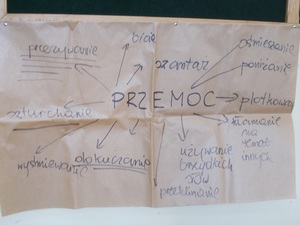 bicie
przezywanie
szantaż
ośmieszanie
poniżanie
PRZEMOC
plotkowa
szturchanie
kłamanie
na
temat
innych
wyśmiewanie
dokuczanie
używanie
brzydkich
słów
przeklinanie